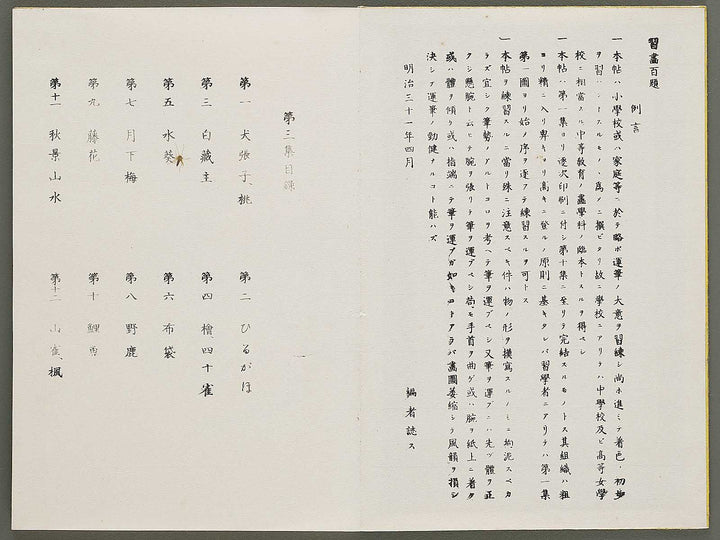 習畫百題
例言
一本帖ハ小學校或ハ家庭等ニ於テ略ボ運筆ノ大意ヲ習練シ尚ホ進ミテ着色ノ初步
ヲ習ハントスルモノヽ爲メニ撰ビタリ故ニ學校ニアリテハ中學校及ビ高等女學
校ニ相當スル中等教育ノ畵學科ノ臨本トスルヲ得ベシ
一本帖ハ第一集ヨリ逐次印刷ニ付シ第十集ニ至リテ完結スルモノトス其組織ハ粗
ヨリ精ニ入リ卑キヨリ高キニ登ルノ原則ニ基キタレバ習學者ニアリテハ第一集
第一圖ヨリ始メ序ヲ逐フテ練習スルヲ可トス
一本帖ヲ練習スルニ當リ殊ニ注意スベキ件ハ物ノ形ヲ摸寫スルノミニ拘泥スベカ
ラズ宜シク筆勢ノアルトコロヲ考ヘテ筆ヲ運ブベシ又筆ヲ運ブニハ先ヅ體ヲ正
クシ懸腕ト云ヒテ腕ヲ張リテ筆ヲ運ブベシ若モ手首ヲ曲ゲ或ハ腕ヲ紙上ニ着ケ
或ハ體ヲ傾ケ或ハ指端ニテ筆ヲ運ブガ如キコトアラバ畵圖萎縮シテ風韻ヲ損シ
決シテ運筆ノ勁健ナルコト能ハズ
明治三十一年四月
編者誌ス
第三集目録
第一 犬張子、桃
第二 ひるがほ
第三 白藏主
第四 檜、四十雀
第五 水葵
第六 布袋
第七 月下梅
第八 野鹿
第九 藤花
第十 鯉魚
第十一 秋景山水
第十二 山雀、楓